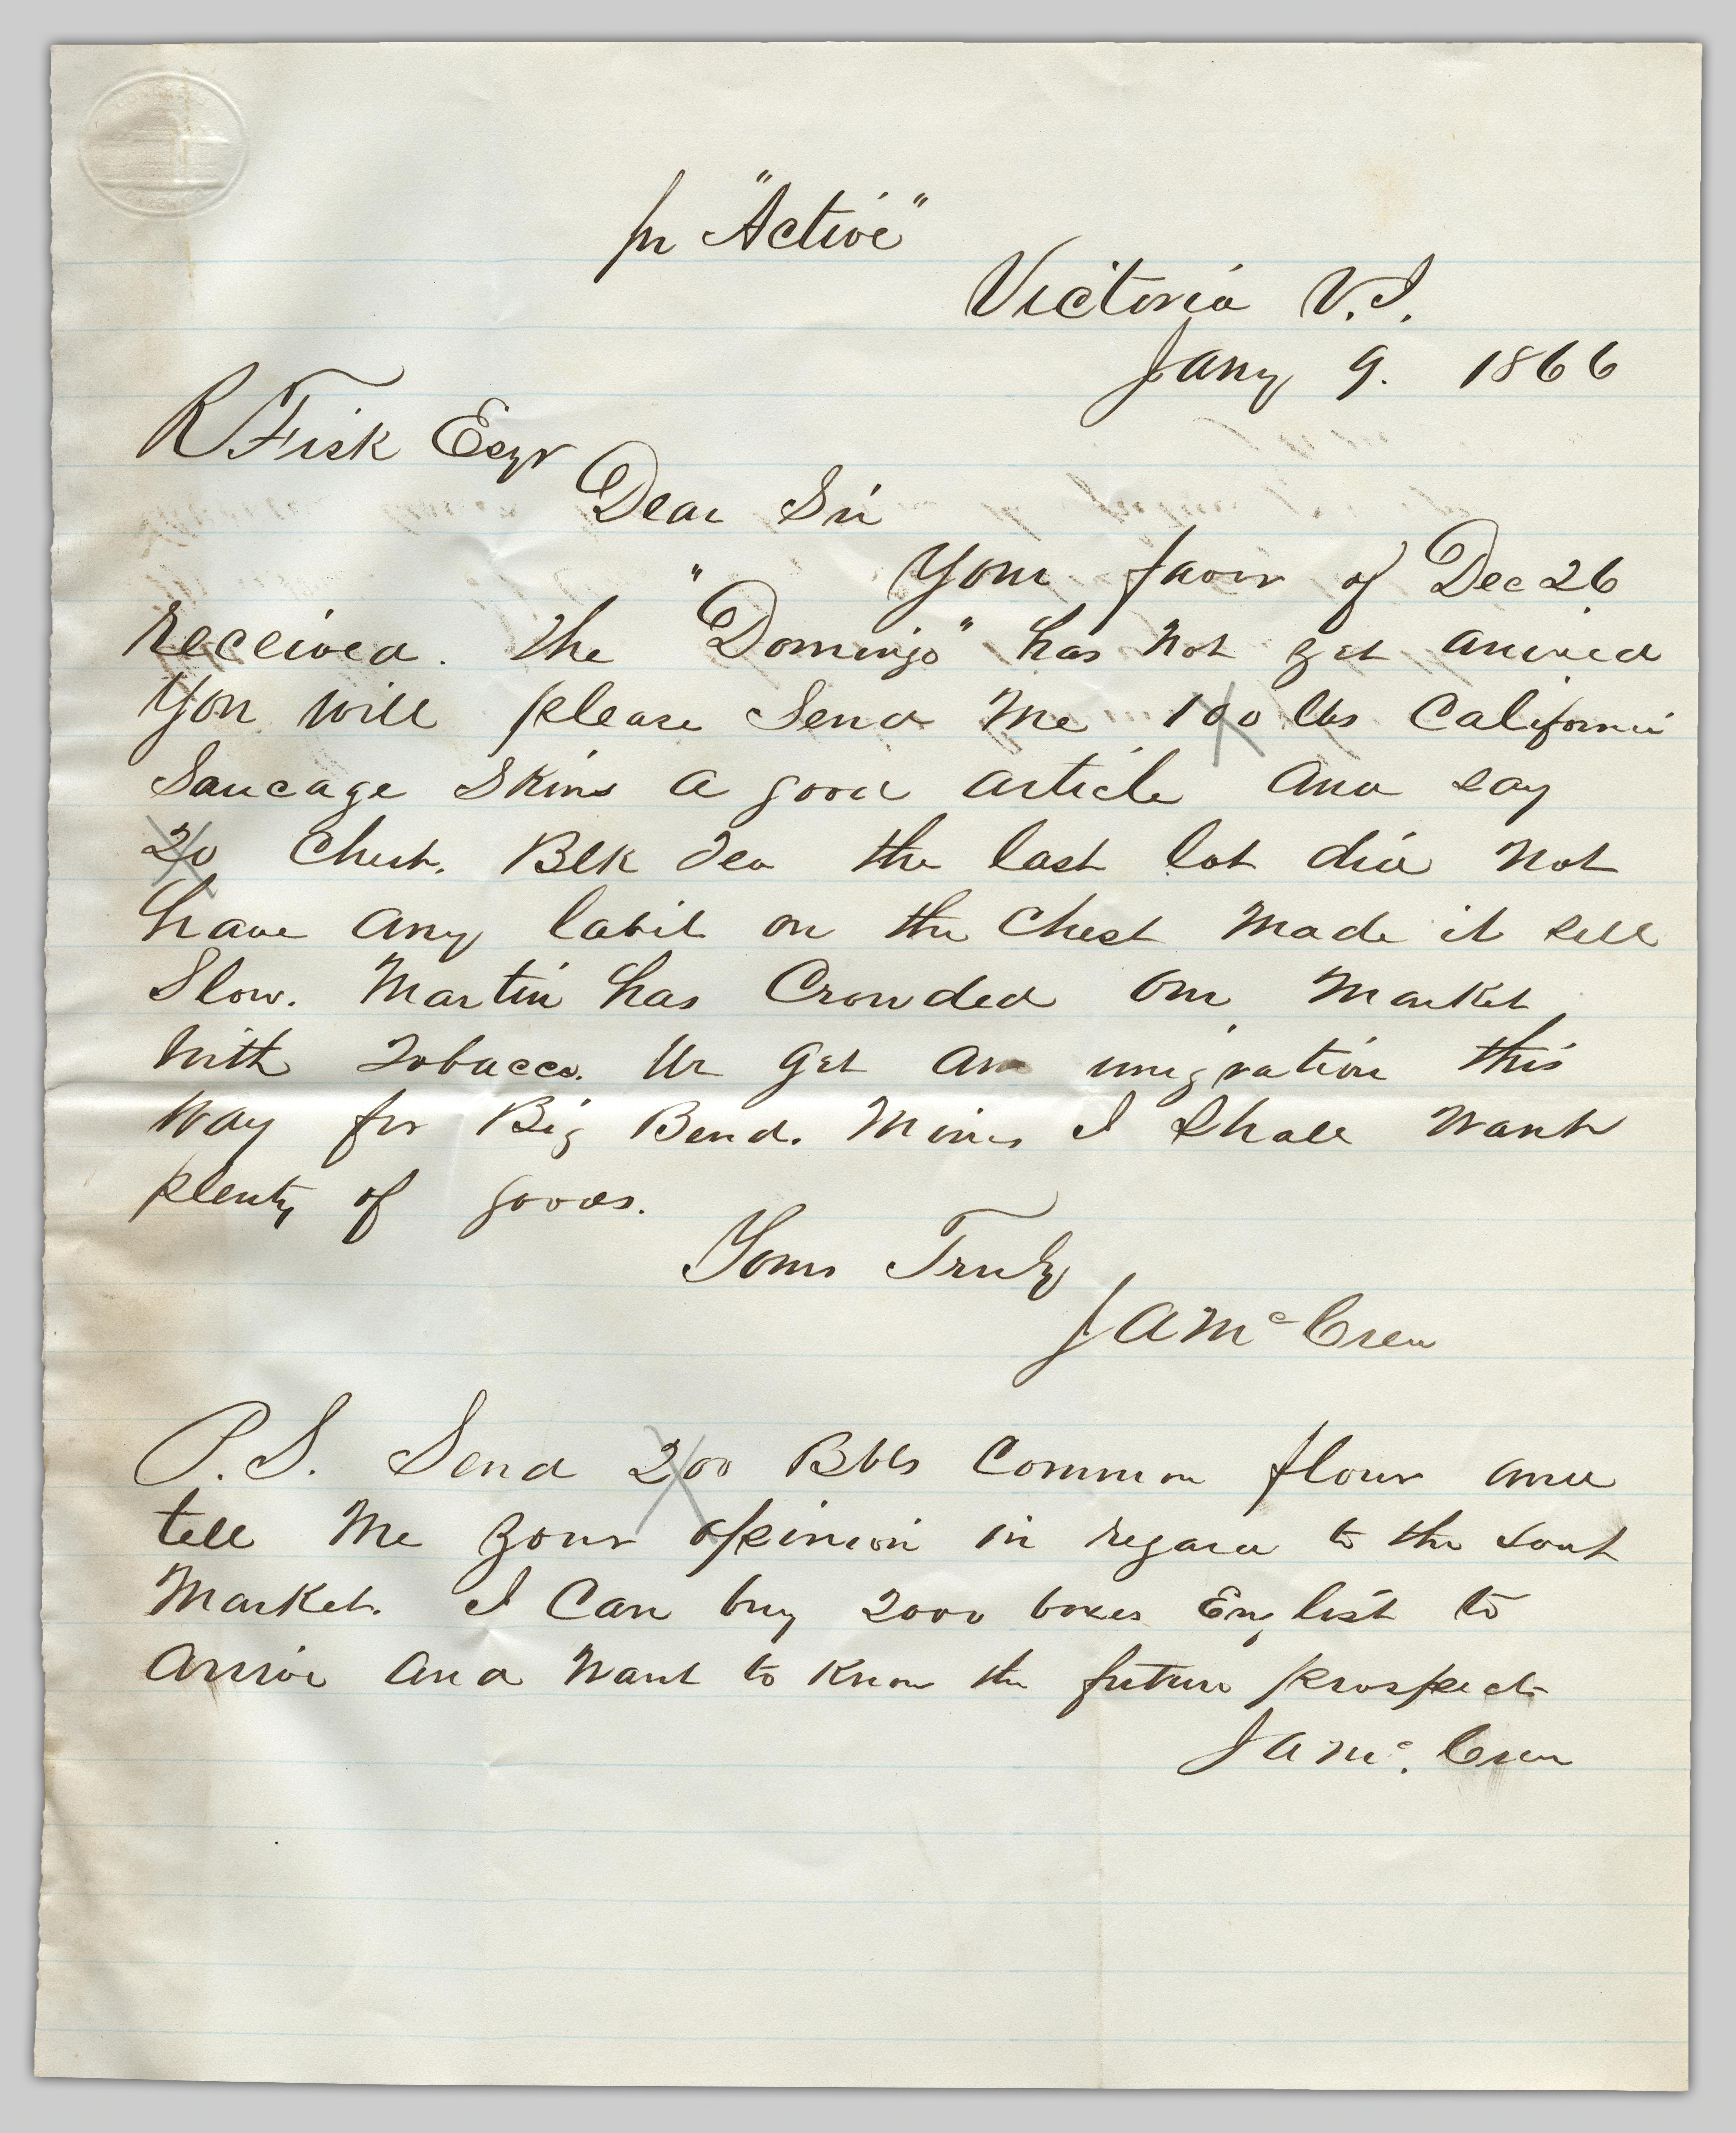 pr "Active"
Victoria V.I.
Jany 9. 1866
R Fisk Esqr
Dear Sir
Your favor of Dec 26
received. The "Domingo" has not yet arrived
You will please send me 100 lbs California
Saucage Skins a good article and say
20 Chest. Blk Tea the last lot did not
have any labil on the Chest made it sell
Slow. Martin has Crowded our market
with Tobacco. We get an imigration this
way for Big Bend. Mines I shall want
plenty of goods.
Yours Truly
J A McCrea
P.S. Send 200 Bbls Common flour and
tell me your opinion in regard to the
Market. I Can buy 2000 boxes English to
arrive and want to know the future prospects
J A Mc. Crea